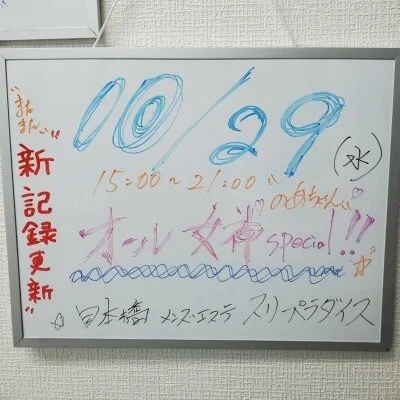 10/29
(水)
15:00～21:00
"のあちゃん"
オール女神special!!
"新記録更新"
☆日本橋 メンズエステ スリーパラダイス